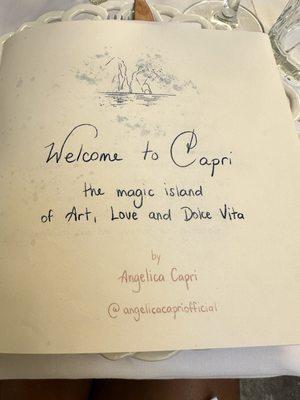 Welcome to Capri
the magic island
of Art, Love and Dolce Vita
by
Angelica Capri
@angelicacapriofficial